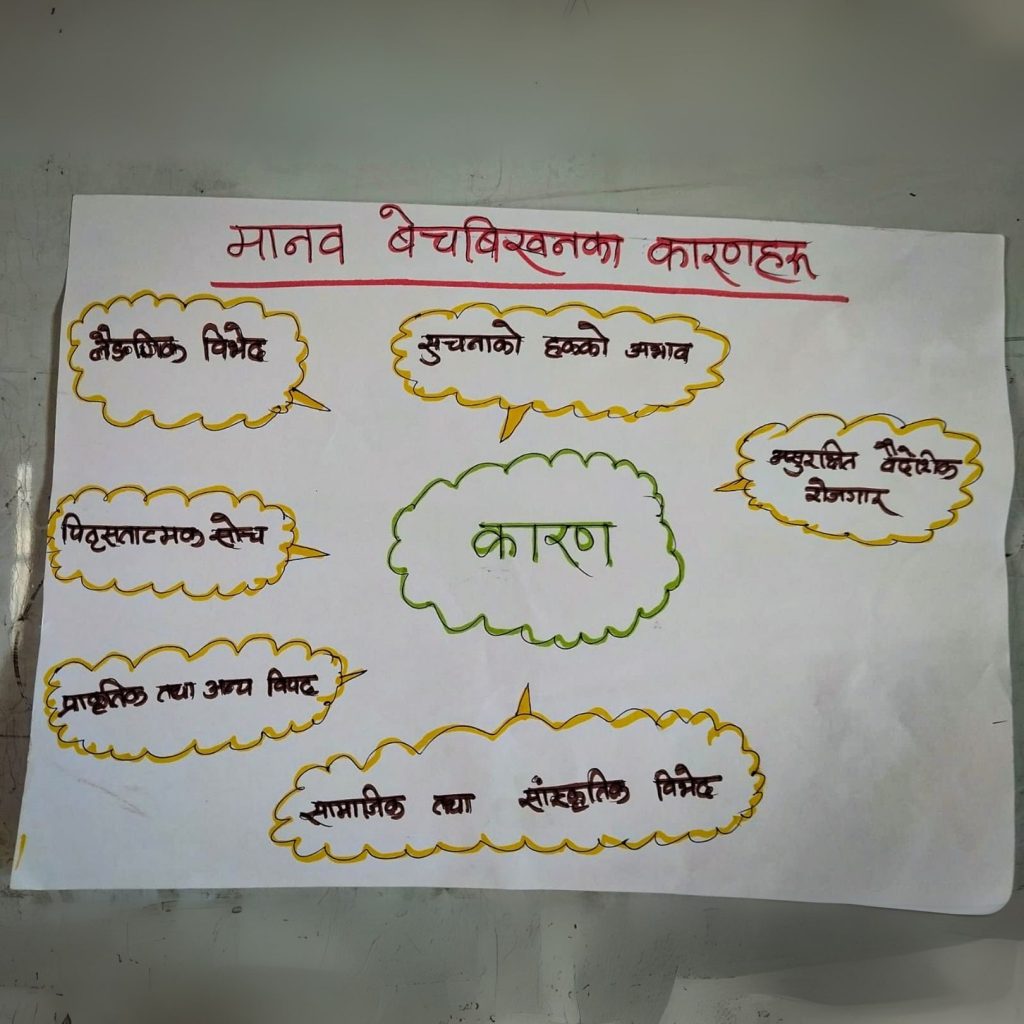 मानव बेचबिखनका कारणहरू
लैङ्गिक विभेद
सुचनाको हकको अभाव
असुरक्षित वैदेशिक
रोजगार
पितृसतात्मक सोच
कारण
प्राकृतिक तथा अन्य विपद
सामाजिक तथा सांस्कृतिक विभेद